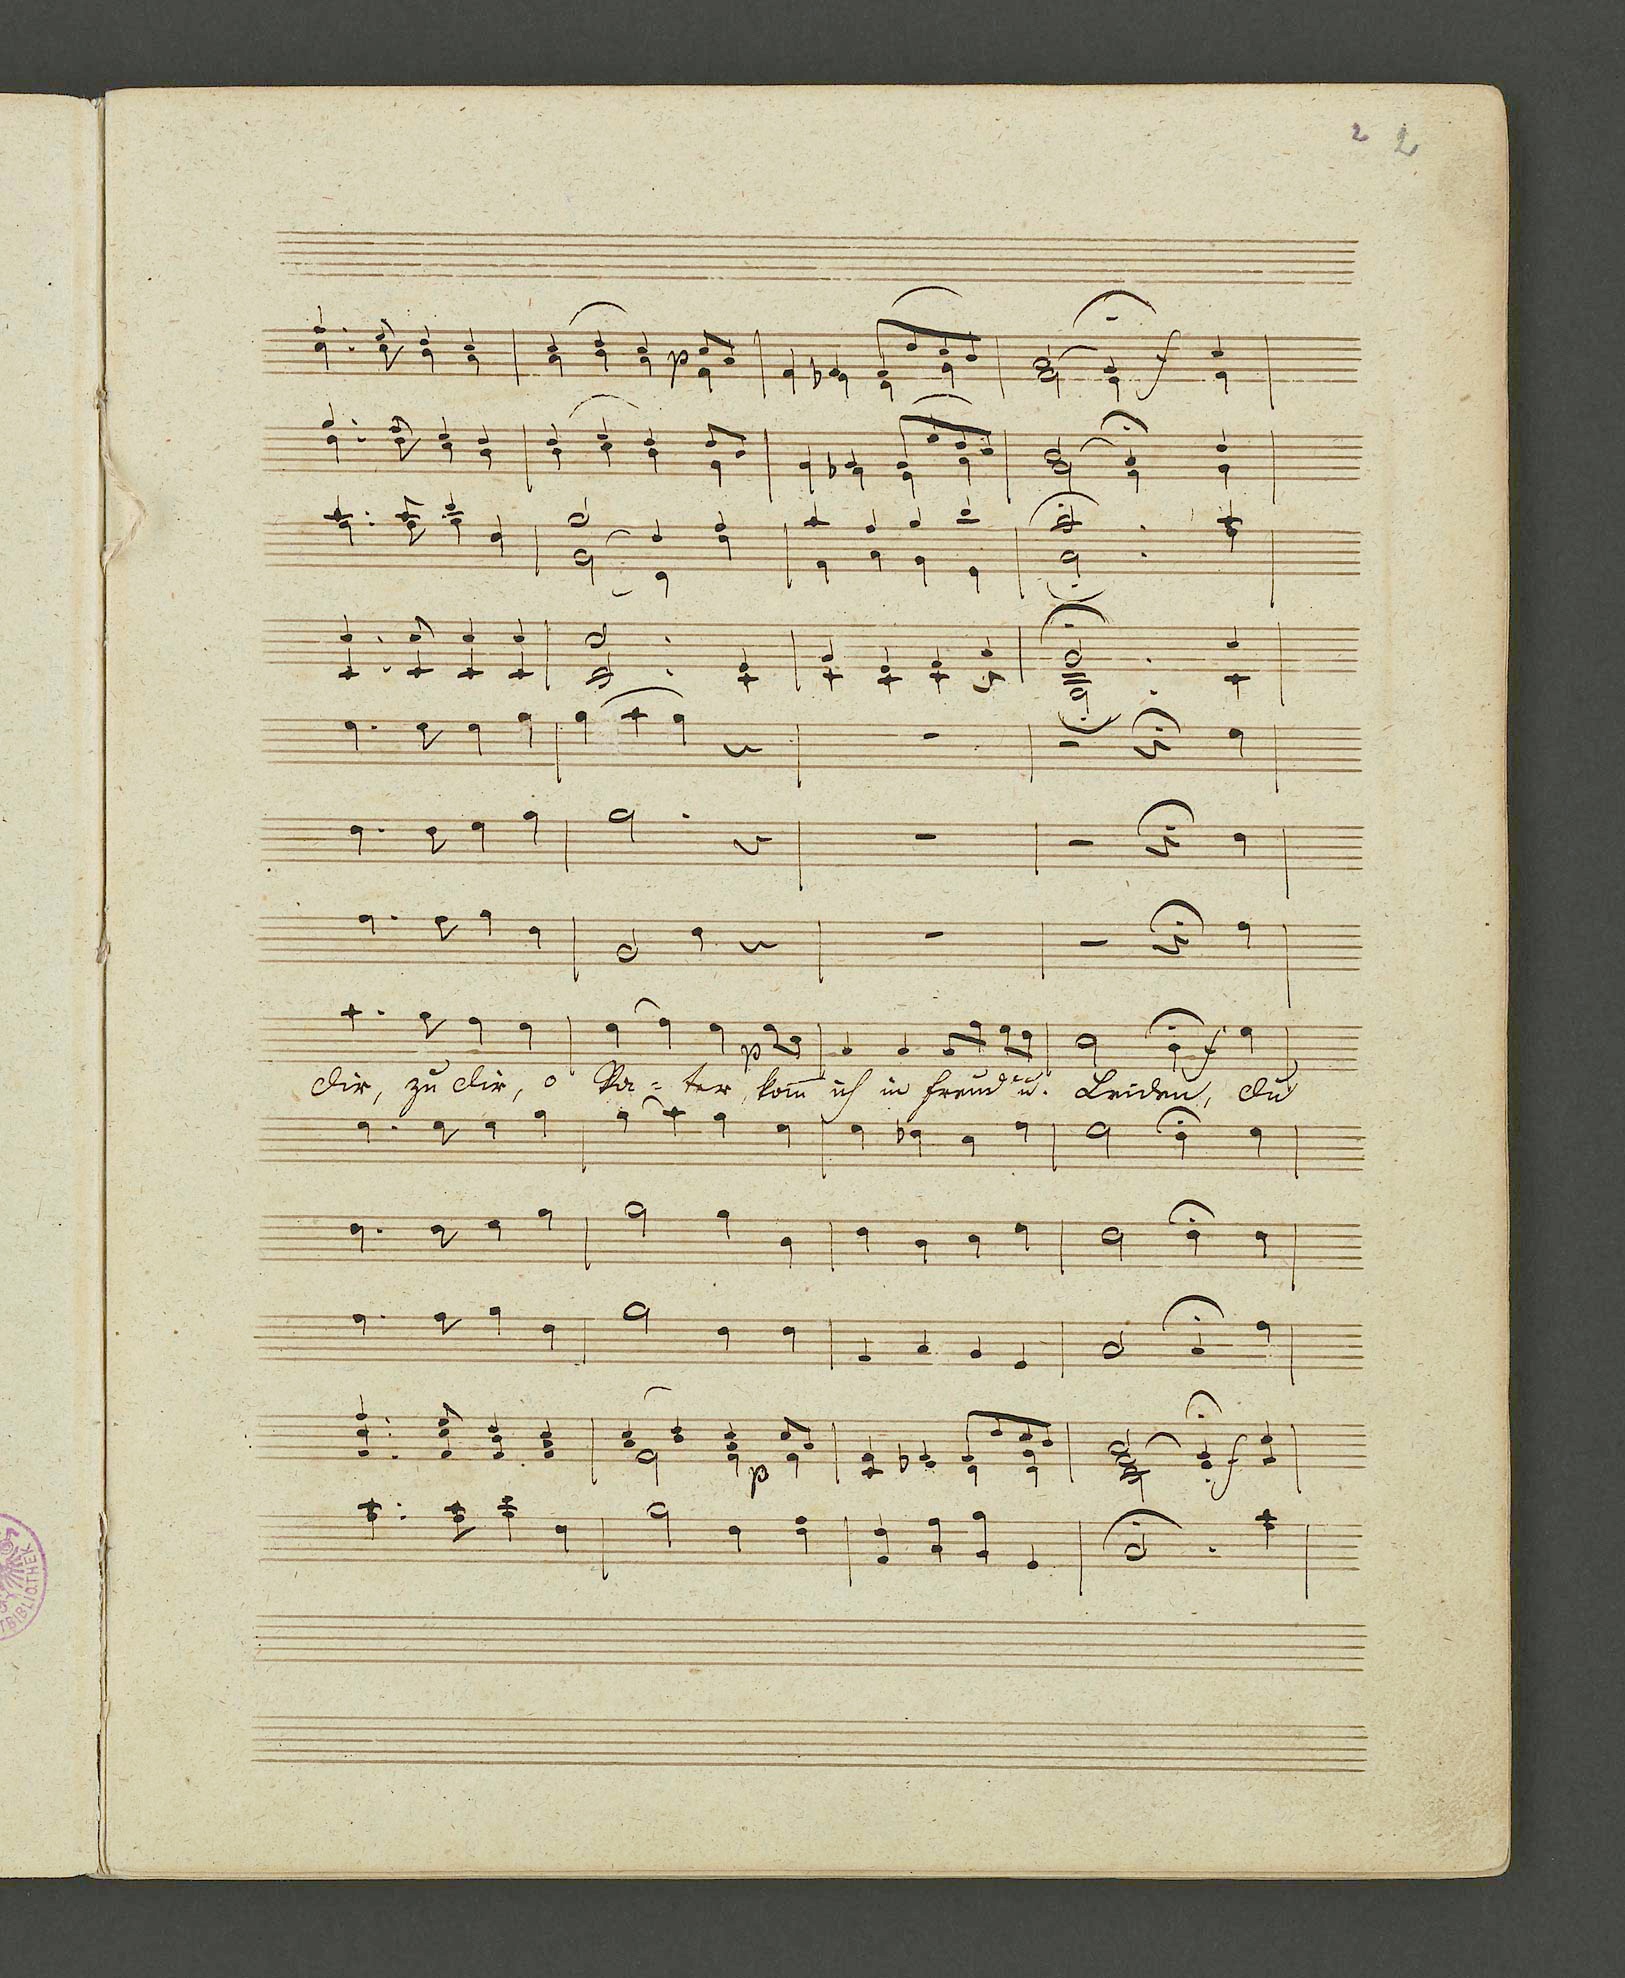 2 2
p
f
dir, zu dir, o Va=ter, kom̄ ich in Freud u. Leiden, du
p f
p f
BIBLIOTHEK